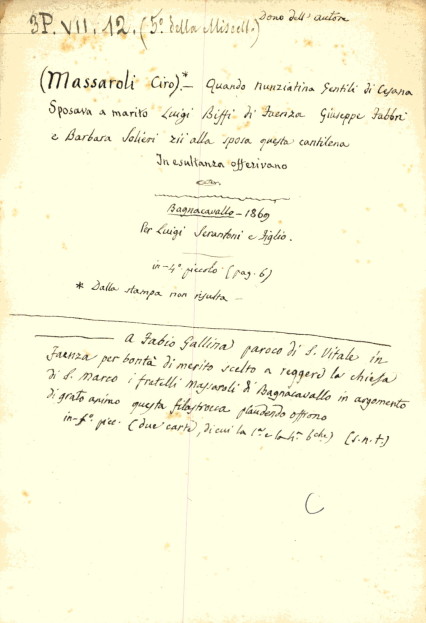 3P. VII. 12. (5º. della Miscell.) Dono dell' autore
(Massaroli Ciro).* — Quando Nunziatina Gentili di Cesena
Sposava a marito Luigi Biffi di Faenza Giuseppe Fabbri
e Barbara Solieri zii alla sposa questa cantilena
In esultanza offerivano
Bagnacavallo — 1869
Per Luigi Serantoni e Figlio.
in-4º piccolo (pag. 6)
* Dalla stampa non risulta —
A Fabio Gallina paroco di S. Vitale in
Faenza per bontà di merito scelto a reggere la chiesa
di S. Marco i fratelli Massaroli di Bagnacavallo in argomento
di grato animo questa filastrocca plaudendo offrono
in-fº. picc. (due carte, di cui la 1ª e la 4ª bche.) (s.n.t.)
C